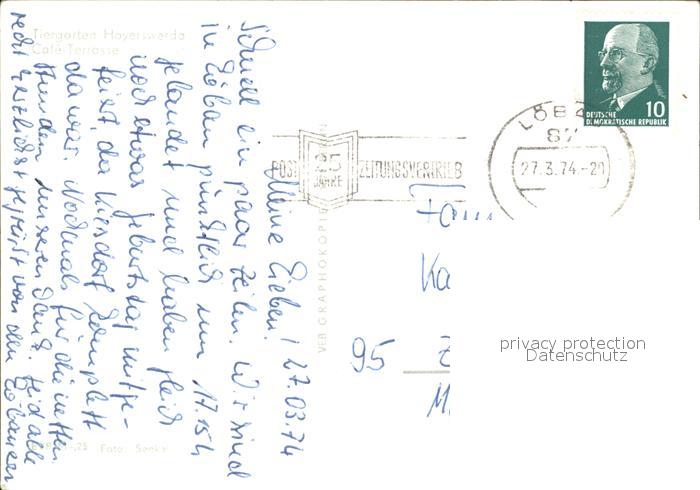 Tiergarten Hoyerswerda
Café-Terrasse
Meine Lieben! 27.03.74
Schnell ein paar Zeilen. Wir sind
in Löbau pünktlich um 17.15 h
gelandet und haben gleich
noch etwas Geburtstag mitge-
feiert, da Kiesdorf komplett
da war. Nochmals für die netten
Stunden unseren Dank. Seid alle
recht herzlichst gegrüßt von den Löbauer
Foto:
VEB GRAPHOKOPIE
POST 25 JAHRE ZEITUNGSVERTRIEB
LÖBAU
87
27.3.74-20
10
DEUTSCHE
DEMOKRATISCHE REPUBLIK
Fam
Ka
95 Z
M
privacy protection
Datenschutz